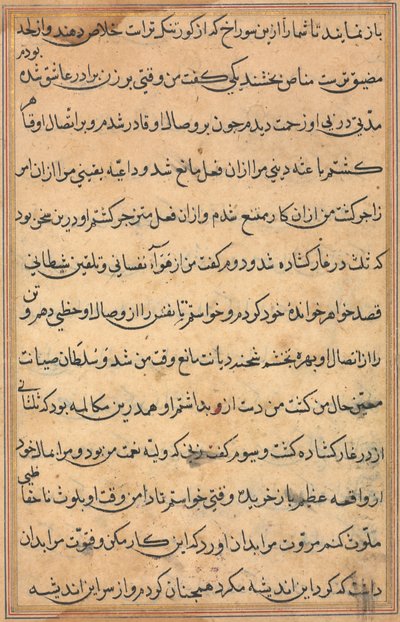 باز نمایند تا شما را ازین سوراخ که از کور تنکه تر است خلاص دهند و از لحد
مضیق ترست مناص بخشند یکی کفت من وقتی بر زن برادر عاشق شده بودم
مدتی در پی او زحمت دیدم جون بر وصال او قادر شدم و بر اتصال او قاهر
کشتم باعثه دینی مرا ازان فعل مانع شد و داعیه یقینی مرا ازان امر
زاجر کشت من ازان کار ممتنع شدم و ازان فعل منزجر کشتم او درین سخن بود
که ثلث در غار کشاده شد و دوم کفت من از هواء نفسانی و تلقین شیطانی
قصد خواهر خوانده خود کردم و خواستم تا نفس را از وصال او حظی دهم و تن
را از اتصال او بهره بخشم شحنه دیانت مانع وقت من شد و سلطان صیانت
معین حال من کشت من دست ازو بداشتم او همدرین مکالمه بود که ثلثانی
از در غار کشاده کشت و سیوم کفت زنی که ولیه نعمت من بود و مرا بمال خود
از واقعه عظیم باز خریده وقتی خواستم تا دامن وقت او بلوث ناحفاظی
ملوث کنم مروت مرا بدان آورد که این کار مکن و فتوت مرا بدان
داشت که کرد این اندیشه مکرد همچنان کردم و از سر این اندیشه